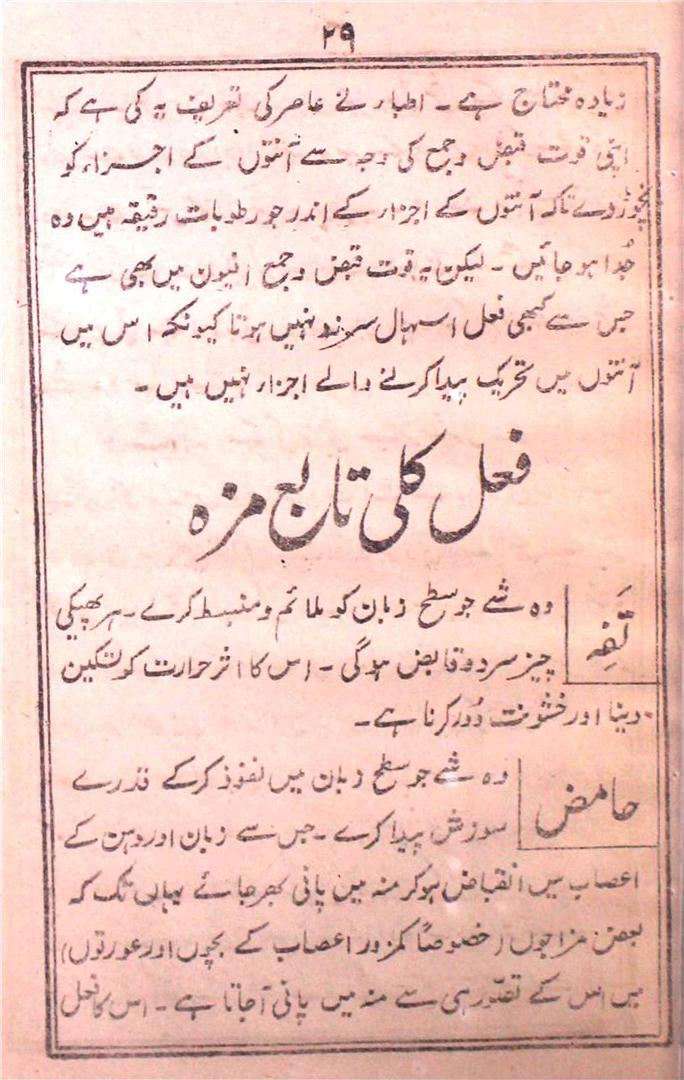 ۲۹
زیادہ محتاج ہے ۔ اطباء نے عاصر کی تعریف یہ کی ہے کہ
اپنی قوت قبض و جمع کی وجہ سے آنتوں کے اجزاء کو
نچوڑ دے تاکہ آنتوں کے اجزاء کے اندر جو رطوبات رقیقہ ہیں وہ
جُدا ہو جائیں ۔ لیکن یہ قوت قبض و جمع افیون میں بھی ہے
جس سے کبھی فعل اسہال سرزد نہیں ہوتا کیونکہ اس میں
آنتوں میں تحریک پیدا کرنے والے اجزاء نہیں ہیں ۔
فعل کلی تابع مزہ
تَفِہ
وہ شے جو سطح زبان کو ملائم و منبسط کرے ۔ ہر پھیکی
چیز سرد و قابض ہو گی ۔ اس کا اثر حرارت کو تسکین
دینا اور خشونت دُور کرنا ہے ۔
حامض
وہ شے جو سطح زبان میں نفوذ کر کے قدرے
سوزش پیدا کرے ۔ جس سے زبان اور دہن کے
اعصاب میں انقباض ہو کر منہ میں پانی بھر جائے یہاں تک کہ
بعض مزاجوں (خصوصاً کمزور اعصاب کے بچوں اور عورتوں)
میں اس کے تصّور ہی سے منہ میں پانی آ جاتا ہے ۔ اس کا فعل